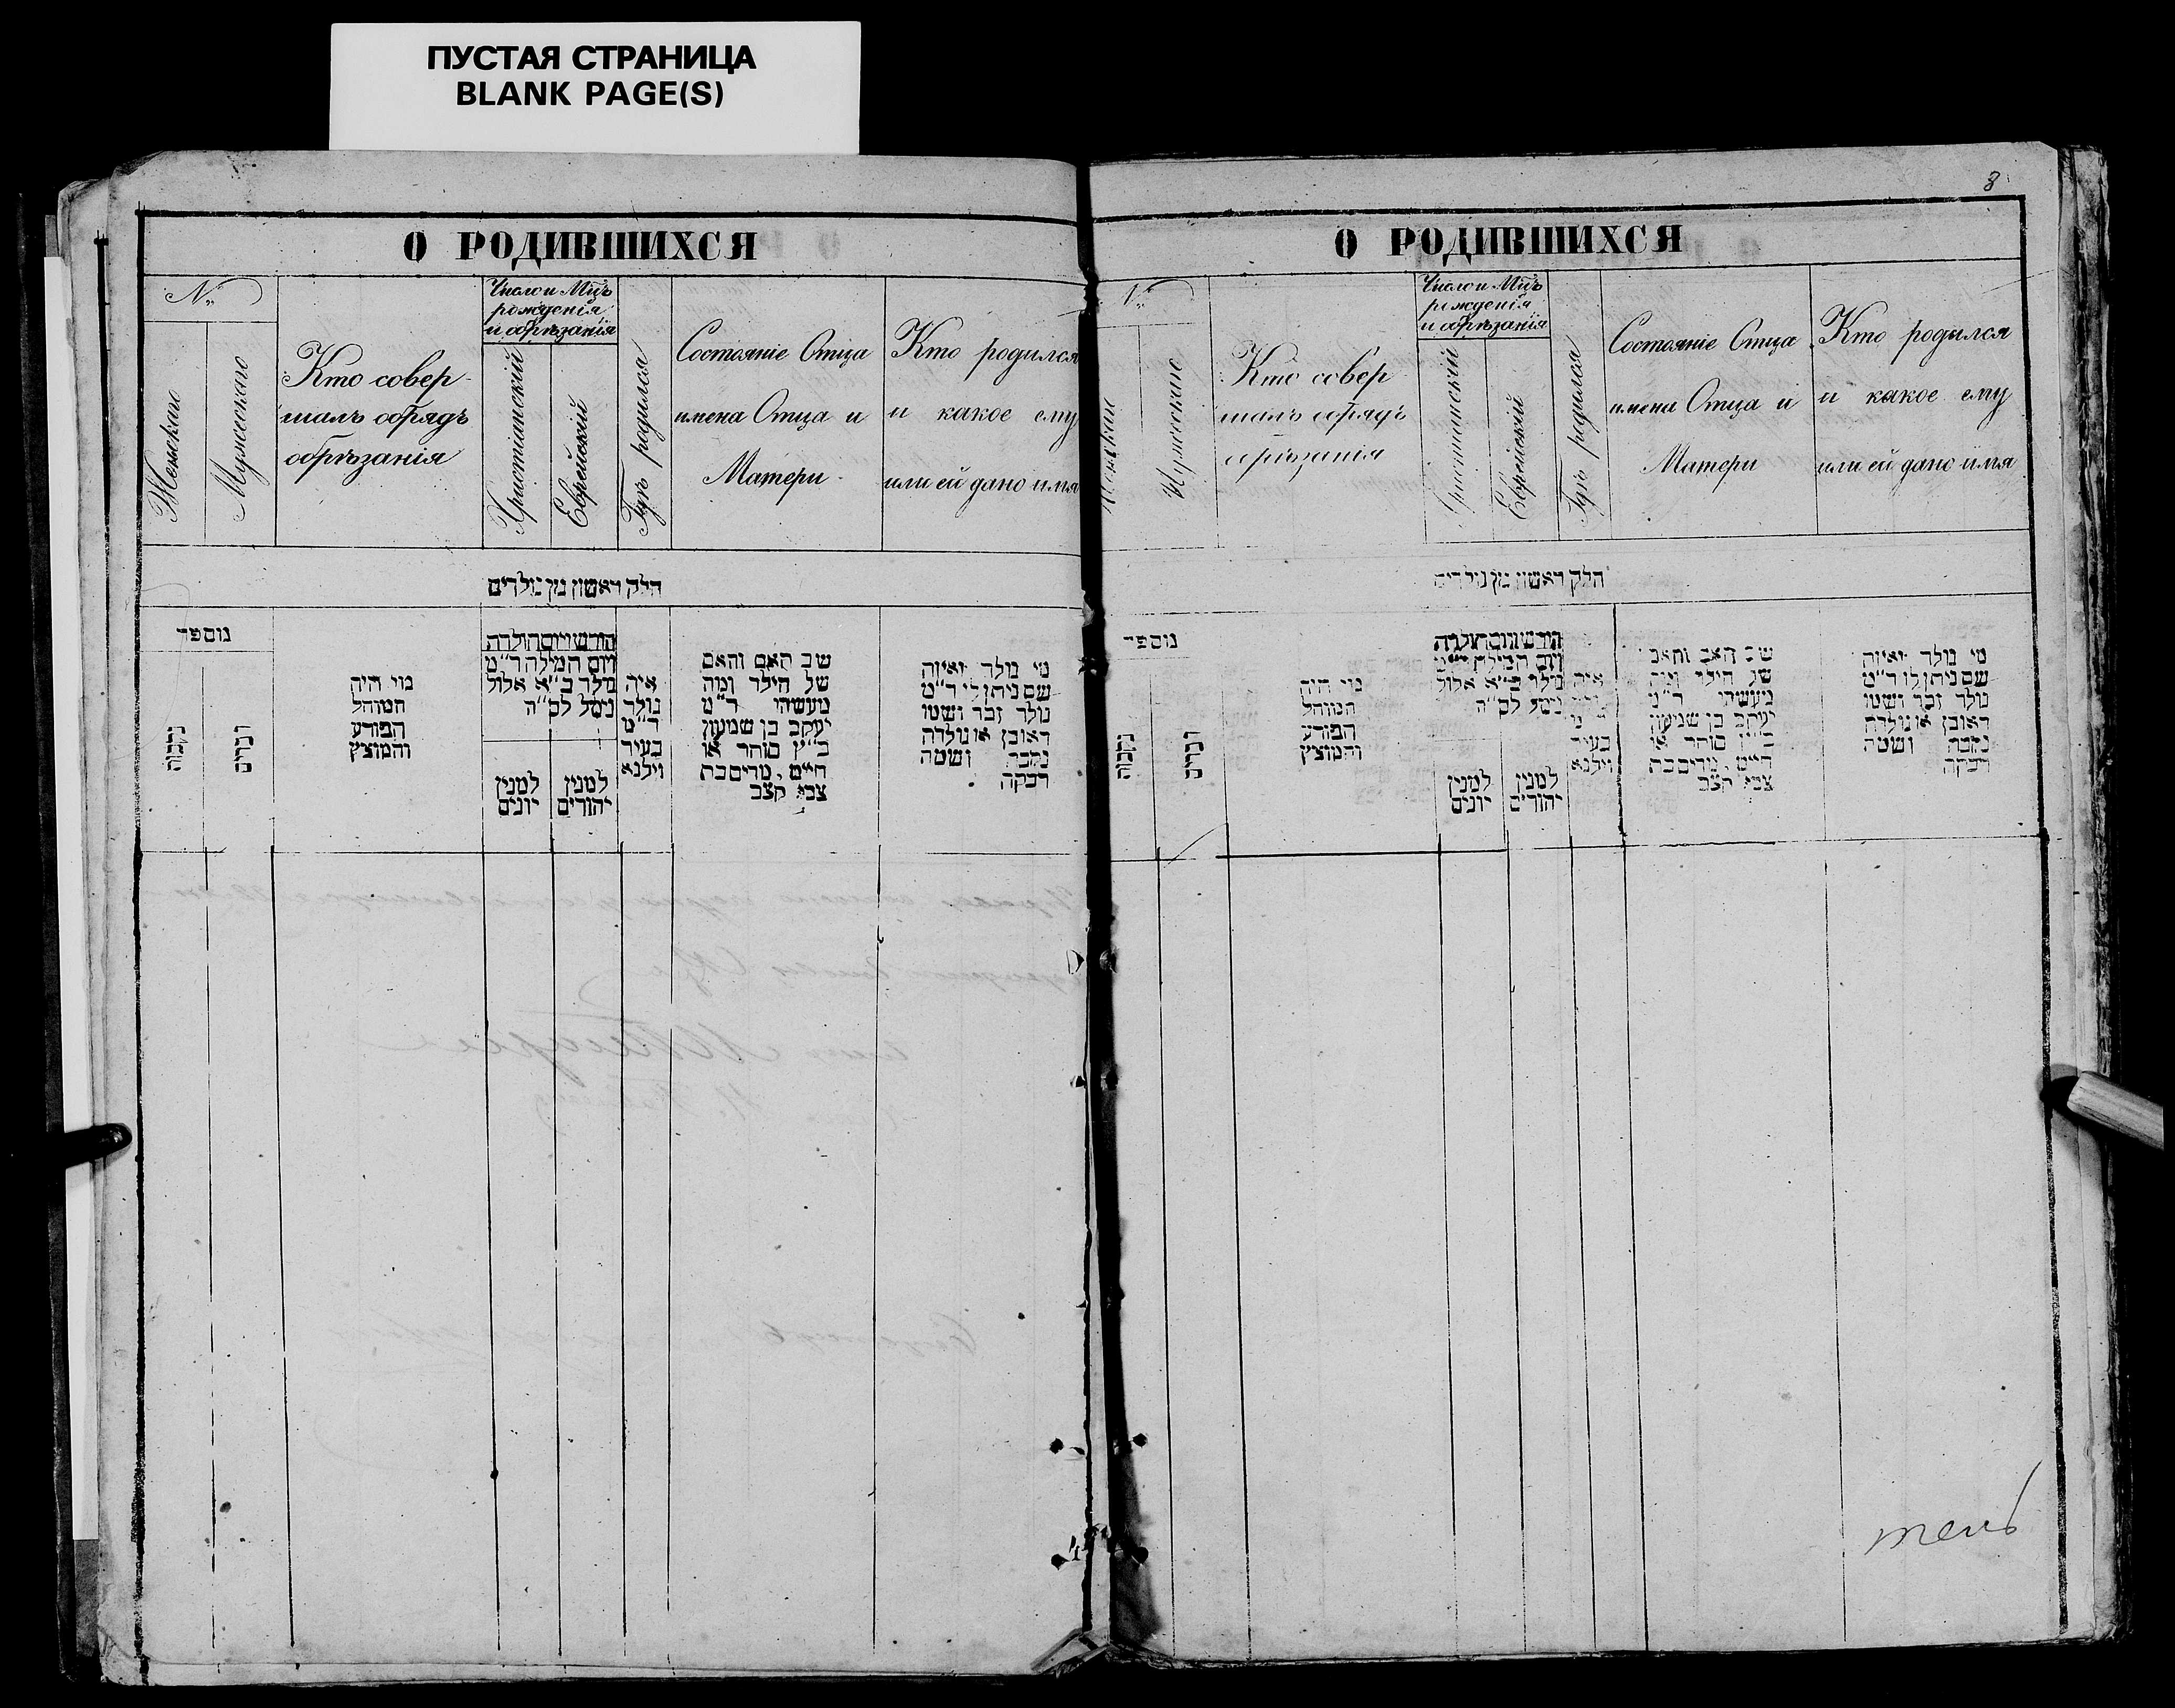 ПУСТАЯ СТРАНИЦА
BLANK PAGE(S)
О РОДИВШИХСЯ
№
Женскаго
Мужескаго
Кто совер-
шалъ обрядъ
обрѣзанія
Число и Мцъ
рожденія
и обрѣзанія
Христіанскій
Еврейскій
Гдѣ родился
Состояніе Отца
имена Отца и
Матери
Кто родился
и какое ему
или ей дано имя
חלק ראשון מן נולדים
נוספר
נקבות
זכרים
מי היה
המוהל
הפורע
והמוצץ
חודש ויום הולדה
ויום המילה ד"מ
נולד ב"א אלול
נימל לס"ה
למנין
יונים
למנין
יהודים
איה
נולד
ד"מ
בעיר
וילנא
שם האב והאם
של הילד ומה
מעשהו ד"מ
יעקב בן שמעון
ב"ץ סוחר או
חיים, מרים בת
צבי קצב
מי נולד ואיזה
שם ניתן לו ד"מ
נולד זכר ושמו
ראובן או נולדה
נקבה ושמה
רבקה
8
О РОДИВШИХСЯ
№
Мужескаго
Кто совер
шалъ обрядъ
обрѣзанія
Число и Мцъ
рожденія
и обрѣзанія
Христіанскій
Еврейскій
Гдѣ родился
Состояніе Отца
имена Отца и
Матери
Кто родился
и какое ему
или ей дано имя
חלק ראשון מן נולדים
נוספר
נקבות
זכרים
מי היה
המוהל
הפורע
והמוצץ
חודש ויום הולדה
ויום המילה ד"מ
נולד ב"א אלול
נימל לס"ה
למנין
יונים
למנין
יהודים
איה
נולד
ד"מ
בעיר
וילנא
שם האב והאם
של הילד ומה
מעשהו ד"מ
יעקב בן שמעון
ב"ץ סוחר או
חיים, מרים בת
צבי קצב
מי נולד ואיזה
שם ניתן לו ד"מ
נולד זכר ושמו
ראובן או נולדה
נקבה ושמה
רבקה